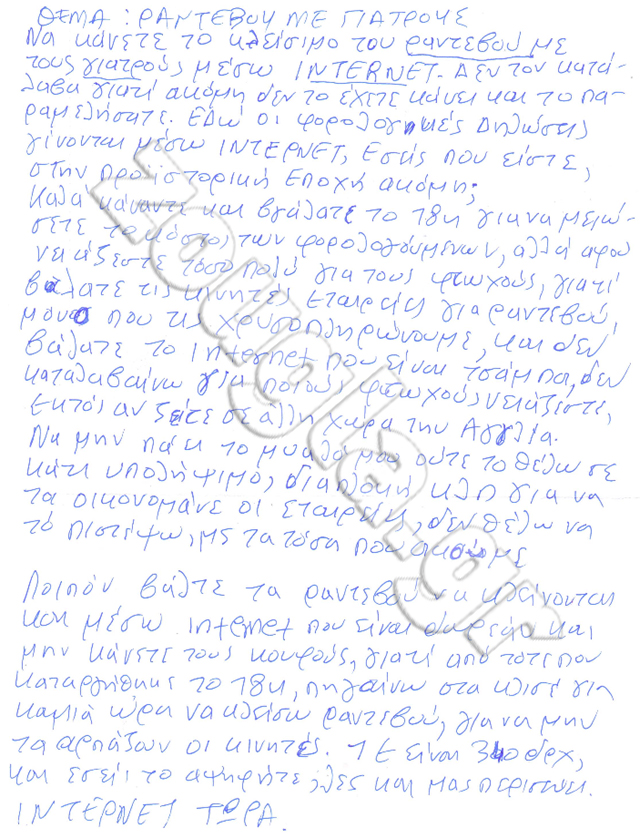 ΘΕΜΑ : ΡΑΝΤΕΒΟΥ ΜΕ ΓΙΑΤΡΟΥΣ
Να κάνετε το κλείσιμο του ραντεβού με
τους γιατρούς μέσω INTERNET. Δεν τον κατά-
λαβα γιατί ακόμη δεν το έχετε κάνει και το πα-
ραμελήσατε. Εδώ οι φορολογικές δηλώσεις
γίνονται μέσω INTERNET, Εσείς που είστε,
στην προϊστορική Εποχή ακόμη;
Καλά κάνατε και βγάλατε το 184 για να μειώ-
σετε το κόστος των φορολογούμενων, αλλά αφού
νειάζεστε τόσο πολύ για τους φτωχούς, γιατί
βάλατε τις κινητές Εταιρείες για ραντεβού,
μόνο που τις χρυσοπληρώνουμε, και δεν
βάλατε το Internet που είναι τσάμπα, δεν
καταλαβαίνω για ποιούς φτωχούς νειάζεστε,
Εκτός αν ζείτε σε άλλη χώρα την Αγγλία.
Να μην πάει το μυαλό μου ούτε το θέλω σε
κάτι υπολήψιμο, διαπλοκή κλπ για να
τα οικονομάνε οι εταιρείες, δεν θέλω να
τό πιστέψω, με τα τόσα που ακούμε
Λοιπόν βάλτε τα ραντεβού να κλείνονται
και μέσω internet που είναι δωρεάν και
μην κάνετε τους κουφούς, γιατί από τότε που
καταργήθηκε το 184, πηγαίνω στα κλισέ για
καμιά ώρα να κλείσω ραντεβού, για να μην
τα αρπάζουν οι κινητές. 1 € είναι 340 δρχ,
και εσείς το αψηφήτε, λες και μας περισεύει.
INTERNET ΤΩΡΑ.
zougla.gr